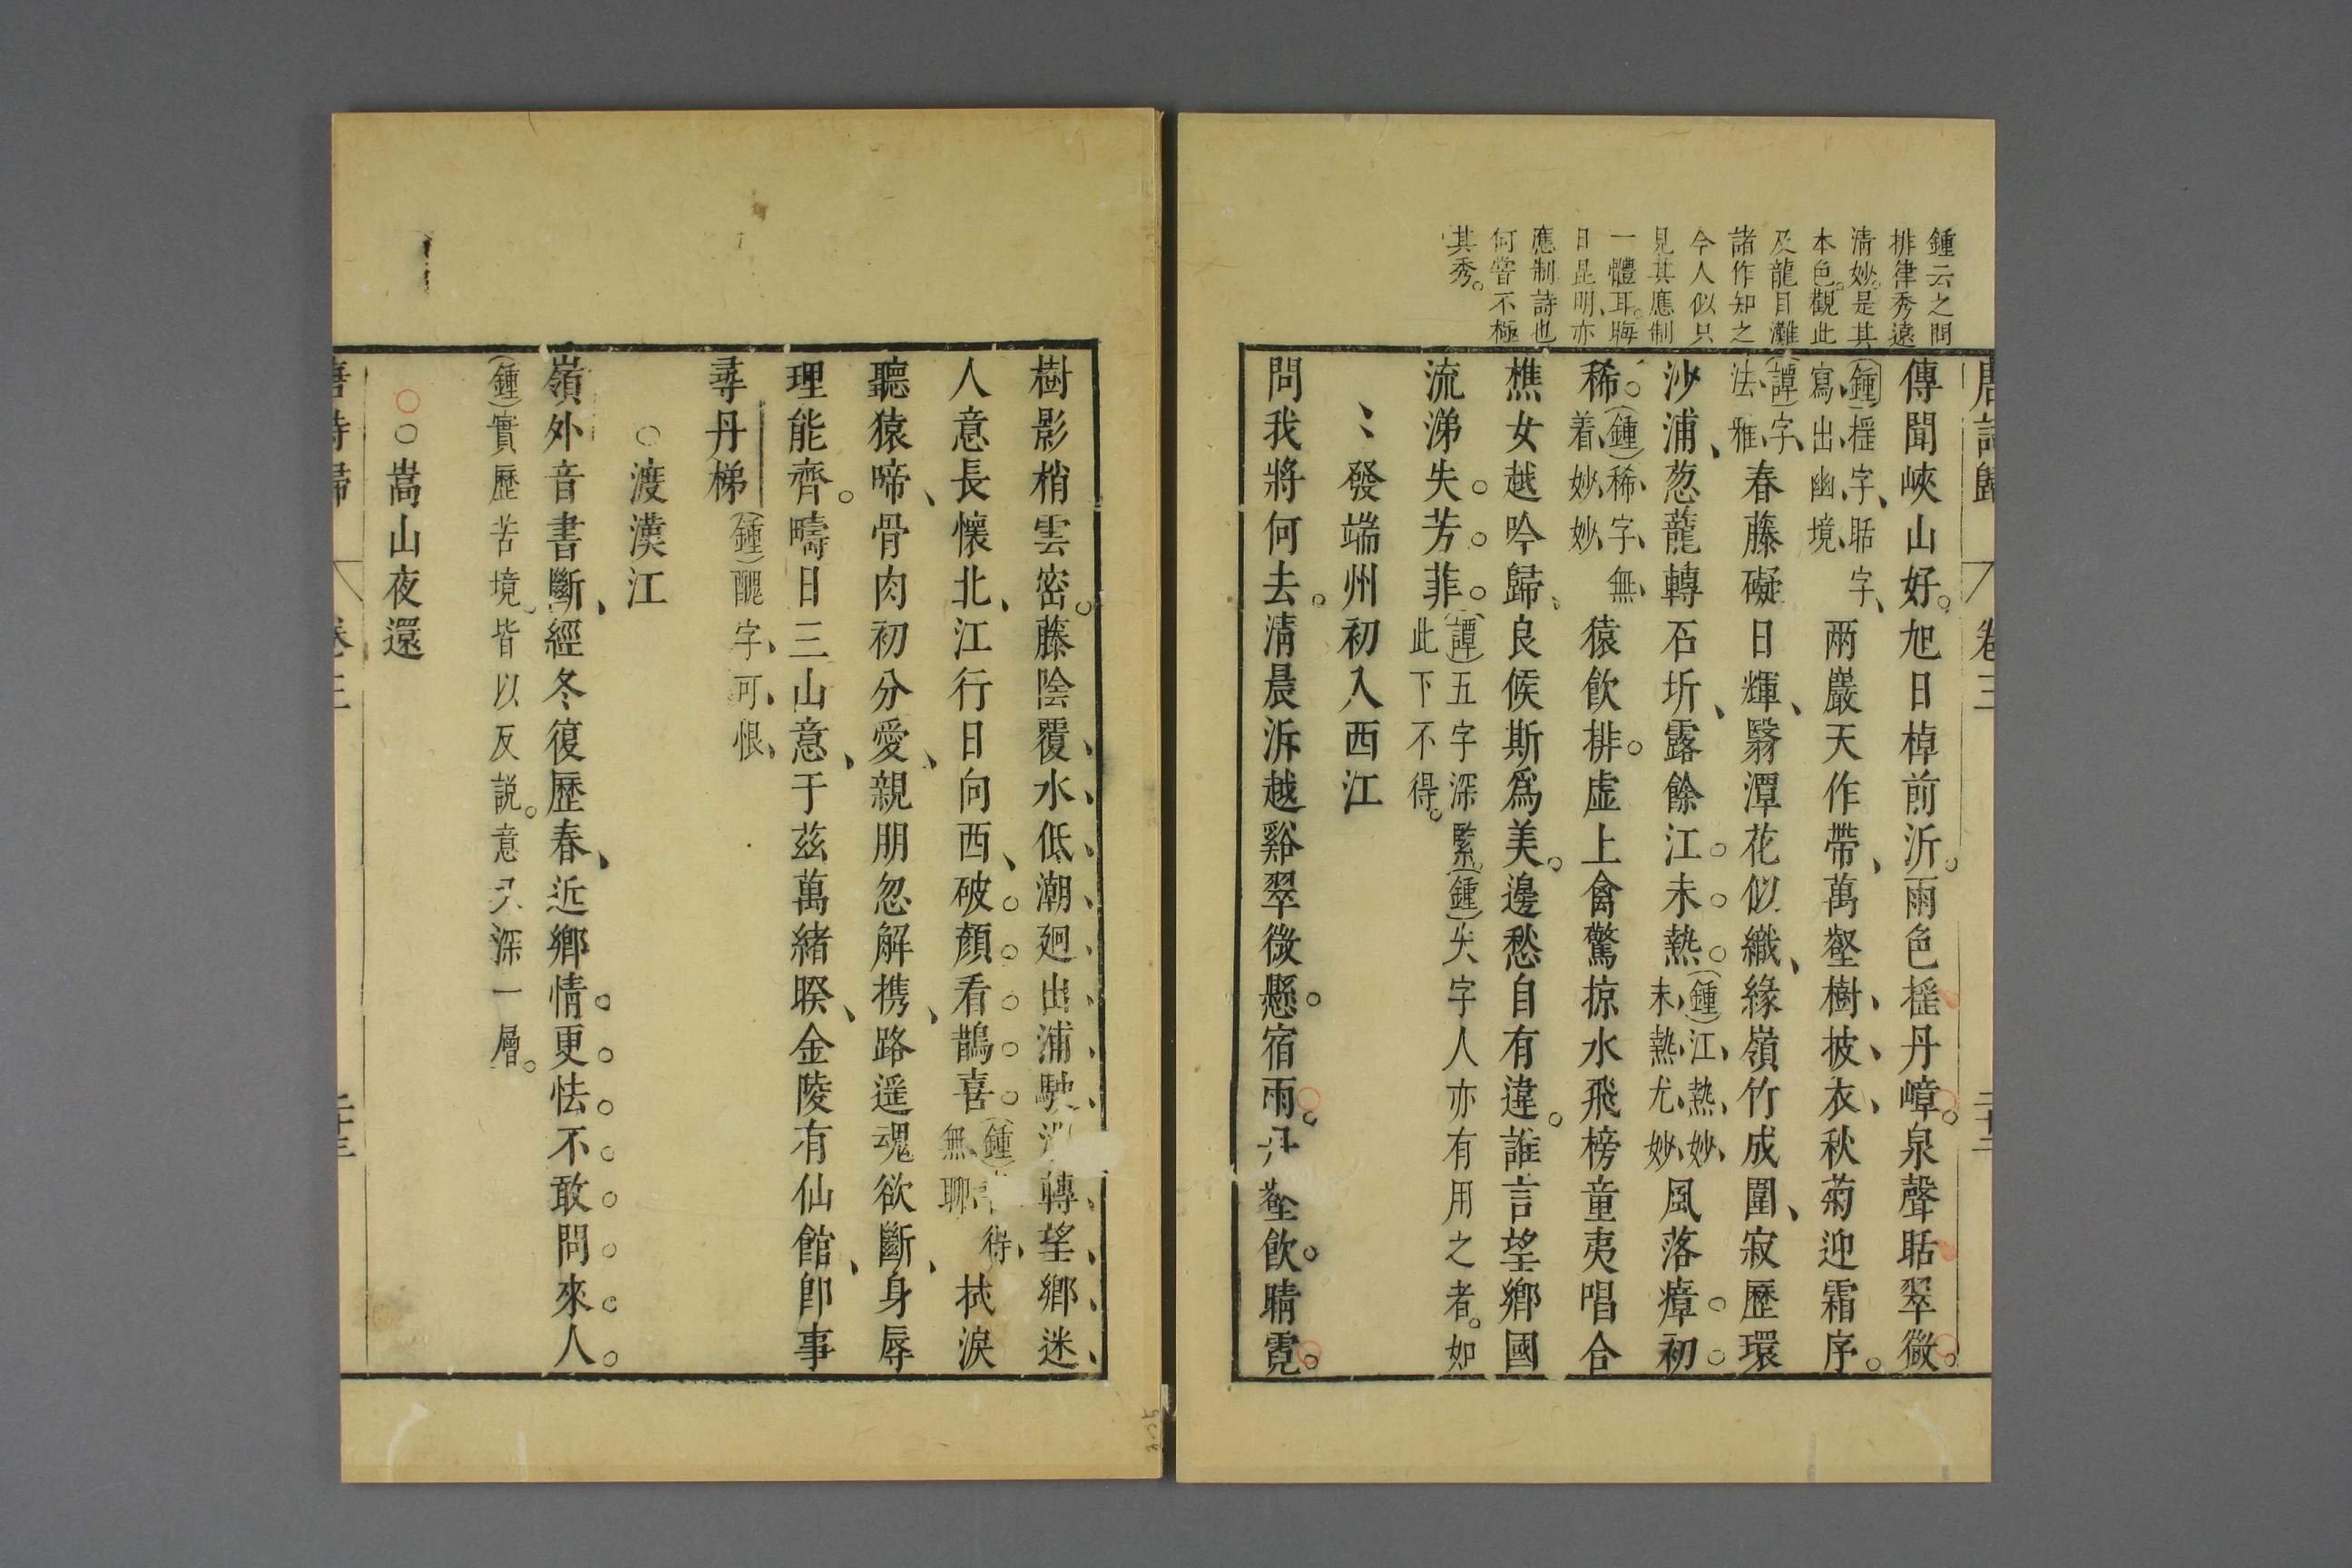 鍾云之問
排律秀遠
清妙是其
本色觀此
及龍目灘
諸作知之
今人似只
見其應制
一體耳晦
日昆明亦
應制詩也
何嘗不極
其秀
唐詩歸 卷三
傳聞峽山好旭日棹前沂雨色搖丹嶂泉聲聒翠微
鍾搖字聒字寫出幽境兩巖天作帶萬壑樹披衣秋菊迎霜序
譚字法雅春藤礙日輝翳潭花似織緣嶺竹成圍寂歷環
沙浦葱蘢轉石圻露餘江未熱鍾江熱妙未熱尤妙風落瘴初
稀鍾稀字無着妙妙猿飲排虛上禽驚掠水飛榜童夷唱合
樵女越吟歸良候斯爲美邊愁自有違誰言望鄉國
流涕失芳菲譚五字深此下不得緊鍾失字人亦有用之者如
發端州初入西江
問我將何去清晨泝越谿翠微懸宿雨丹壑飲晴霓
樹影梢雲密藤陰覆水低潮廻出浦駛轉望鄉迷
人意長懷北江行日向西破顏看鵲喜鍾得無聊拭淚
聽猿啼骨肉初分愛親朋忽解携路遥魂欲斷身辱
理能齊疇日三山意于兹萬緒睽金陵有仙館卽事
尋丹梯鍾醜字可恨
渡漢江
嶺外音書斷經冬復歷春近鄉情更怯不敢問來人
鍾實歷苦境皆以反説意又深一層
嵩山夜還
唐詩歸 卷三